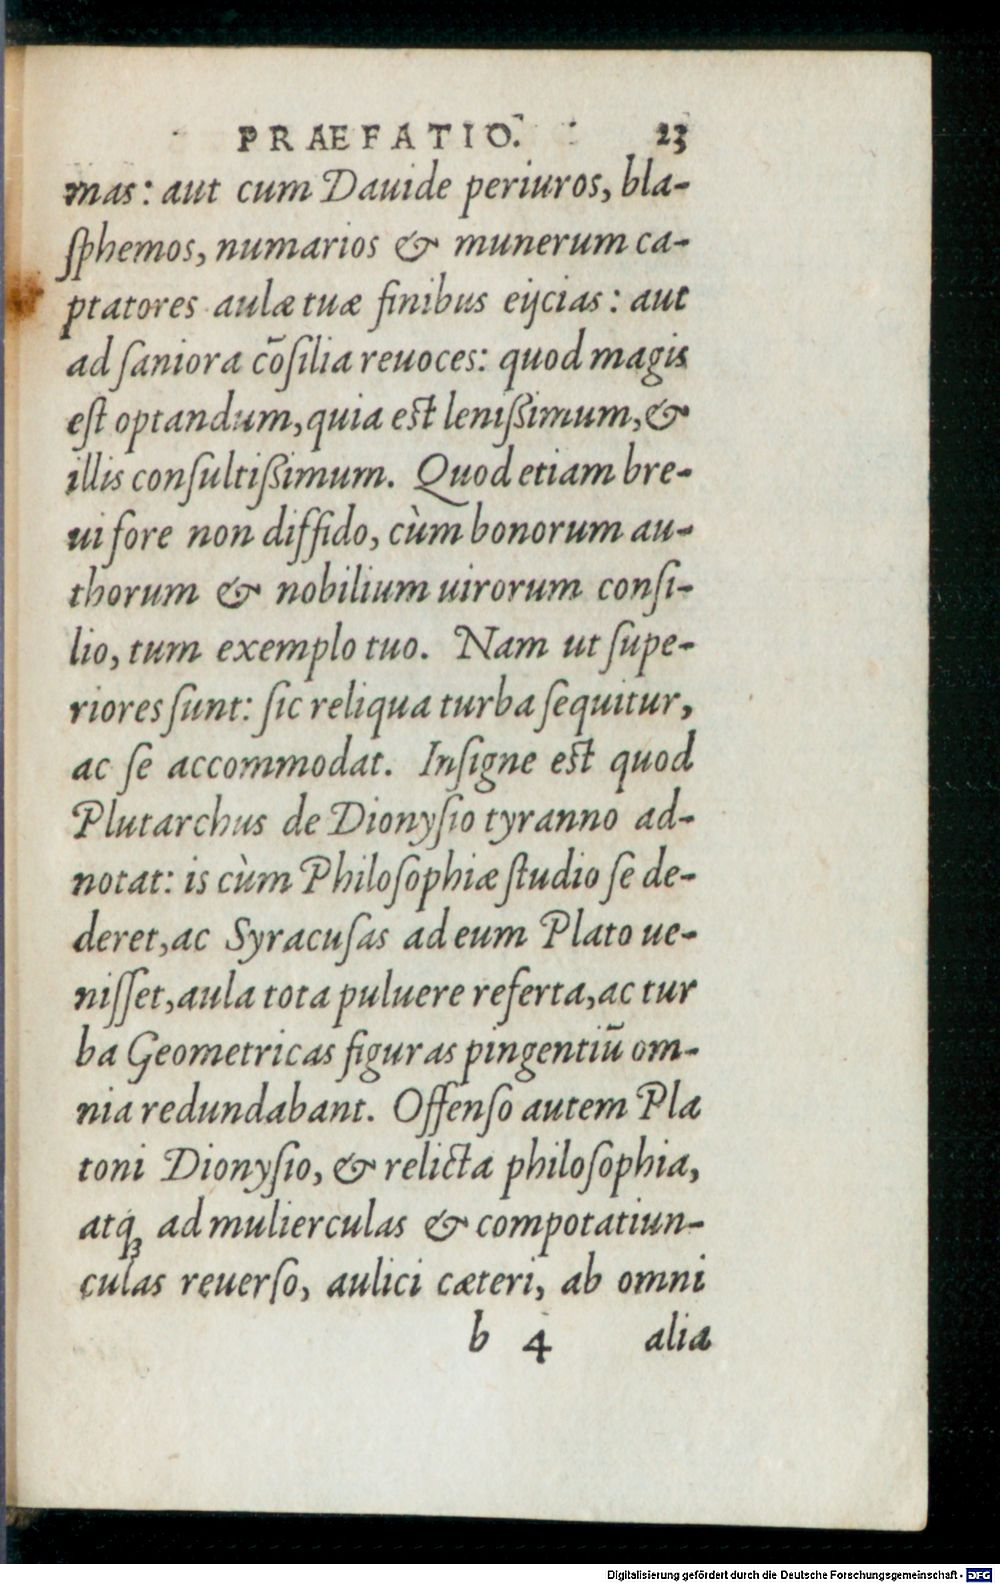 PRAEFATIO. 23
mas: aut cum Dauide periuros, bla-
ſphemos, numarios & munerum ca-
ptatores aulæ tuæ finibus eijcias: aut
ad ſaniora cōſilia reuoces: quod magis
eſt optandum, quia eſt leniſsimum, &
illis conſultiſsimum. Quod etiam bre-
ui fore non diffido, cùm bonorum au-
thorum & nobilium uirorum conſi-
lio, tum exemplo tuo. Nam ut ſupe-
riores ſunt: ſic reliqua turba ſequitur,
ac ſe accommodat. Inſigne eſt quod
Plutarchus de Dionyſio tyranno ad-
notat: is cùm Philoſophiæ ſtudio ſe de-
deret, ac Syracuſas ad eum Plato ue-
niſſet, aula tota puluere referta, ac tur
ba Geometricas figuras pingentiū om-
nia redundabant. Offenſo autem Pla
toni Dionyſio, & relicta philoſophia,
atq́ꝫ ad mulierculas & compotatiun-
culas reuerſo, aulici cæteri, ab omni
b 4 alia
Digitalisierung gefördert durch die Deutsche Forschungsgemeinschaft - DFG